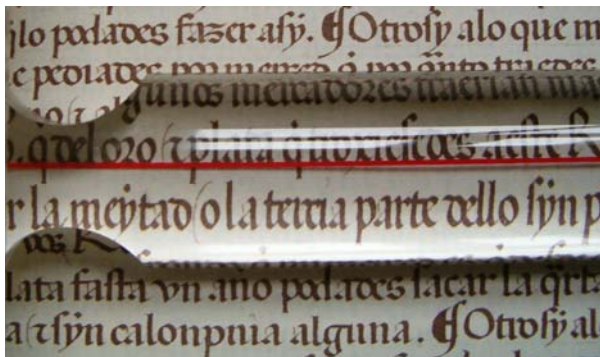 ylo podades fazer asy. ¶ Otrosy alo que m
e pediades por merçed q̃ por q̃nto traedes
algunos mercadores traerian ma
q̃ del oro ⁊ plata q̃ troxiesedes a este R
r la meytad o la terçia parte dello syn p
dos
lata fasta vn ano podades sacar la q̃rta
a ⁊ syn calonpnia alguna. ¶ Otrosy alo